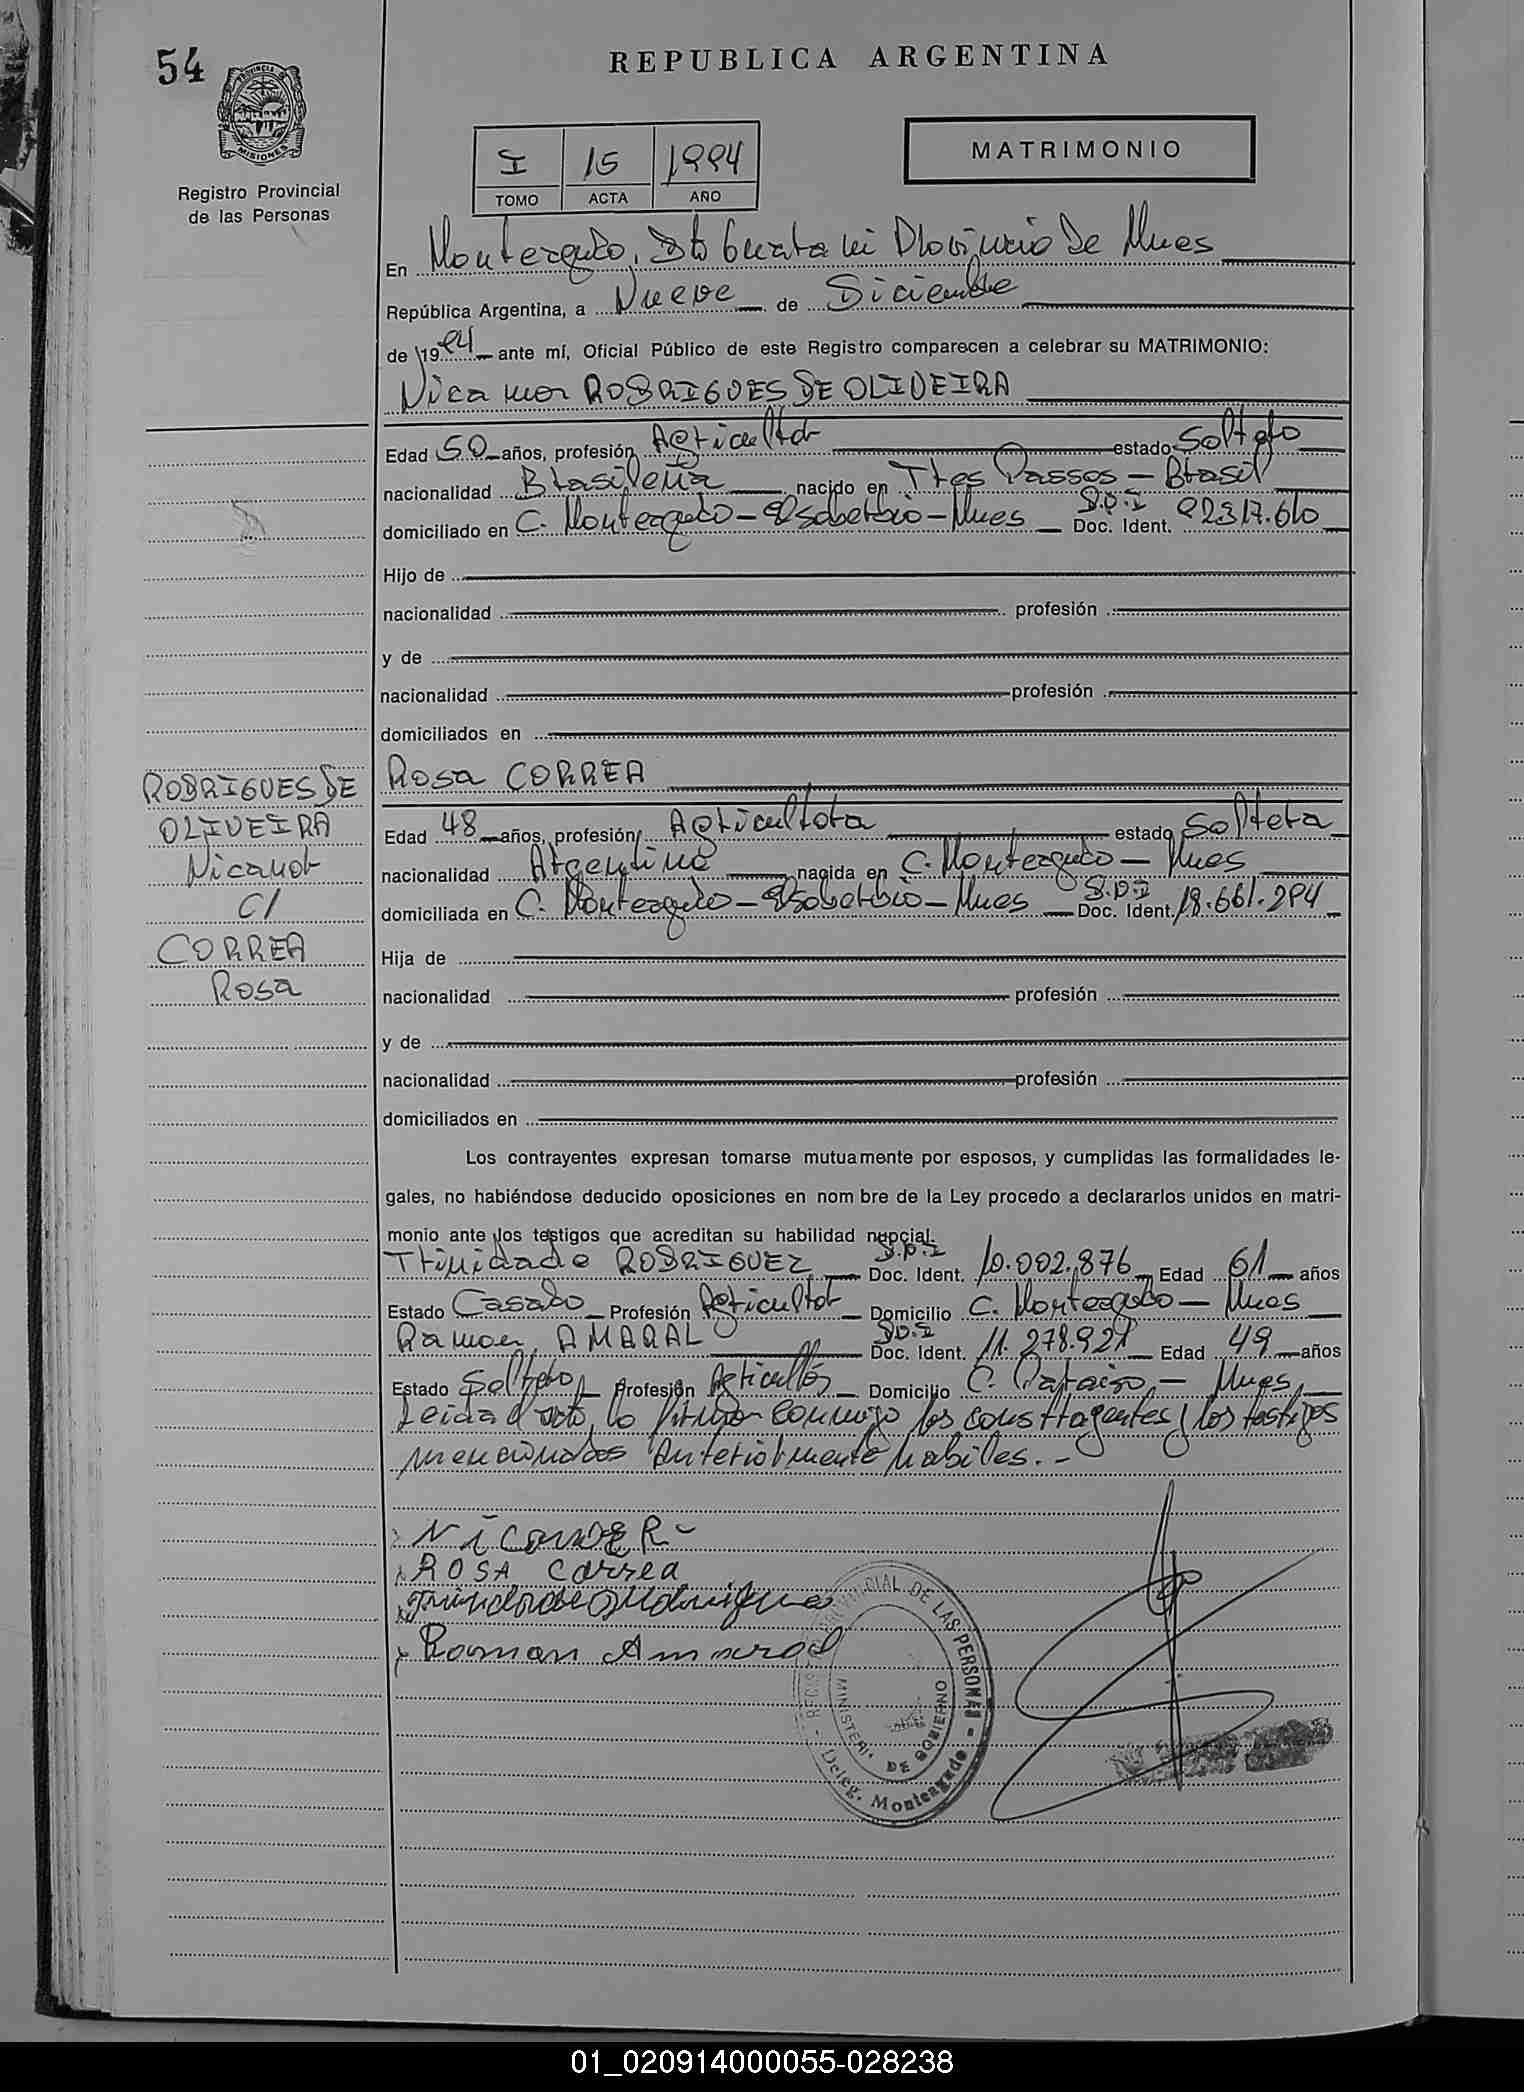 54
REPUBLICA ARGENTINA
PROVINCIA DE
MISIONES
Registro Provincial
de las Personas
I 15 1994
TOMO ACTA AÑO
MATRIMONIO
En Monteagudo, Dto Guarani Provincia de Mnes
República Argentina, a Nueve de Diciembre
de 1994 ante mí, Oficial Público de este Registro comparecen a celebrar su MATRIMONIO:
Nicanor RODRIGUES DE OLIVEIRA
Edad 50 años, profesión Agricultor estado Soltero
nacionalidad Brasileña nacido en Tres Passos - Brasil
domiciliado en C. Monteagudo - - Mnes D.N.I Doc. Ident. 92317.610
Hijo de
nacionalidad profesión
y de
nacionalidad profesión
domiciliados en
RODRIGUES DE
OLIVEIRA
Nicanor
C/
CORREA
Rosa
Rosa CORREA
Edad 48 años, profesión Agricultora estado Soltera
nacionalidad Argentina nacida en C. Monteagudo - Mnes
domiciliada en C. Monteagudo - - Mnes D.N.I Doc. Ident. 18.661.294
Hija de
nacionalidad profesión
y de
nacionalidad profesión
domiciliados en
Los contrayentes expresan tomarse mutuamente por esposos, y cumplidas las formalidades le-
gales, no habiéndose deducido oposiciones en nom bre de la Ley procedo a declararlos unidos en matri-
monio ante los testigos que acreditan su habilidad nupcial.
Trinidade RODRIGUEZ D.N.I Doc. Ident. 10.002.876 Edad 61 años
Estado Casado Profesión Agricultor Domicilio C. Monteagudo - Mnes
Ramon AMARAL D.N.I Doc. Ident. 11.278.921 Edad 49 años
Estado Soltero Profesión Agricultor Domicilio C. Paraiso - Mnes
Leida el acto, lo firman conmigo los contrayentes y los testigos
mencionados anteriormente habiles. -
NicanDER -
ROSA Correa
Ramon Amaral
PROVINCIAL DE LAS PERSONAS
MINISTERI DE GOBIERNO
Deleg. Monteagudo
01_020914000055-028238